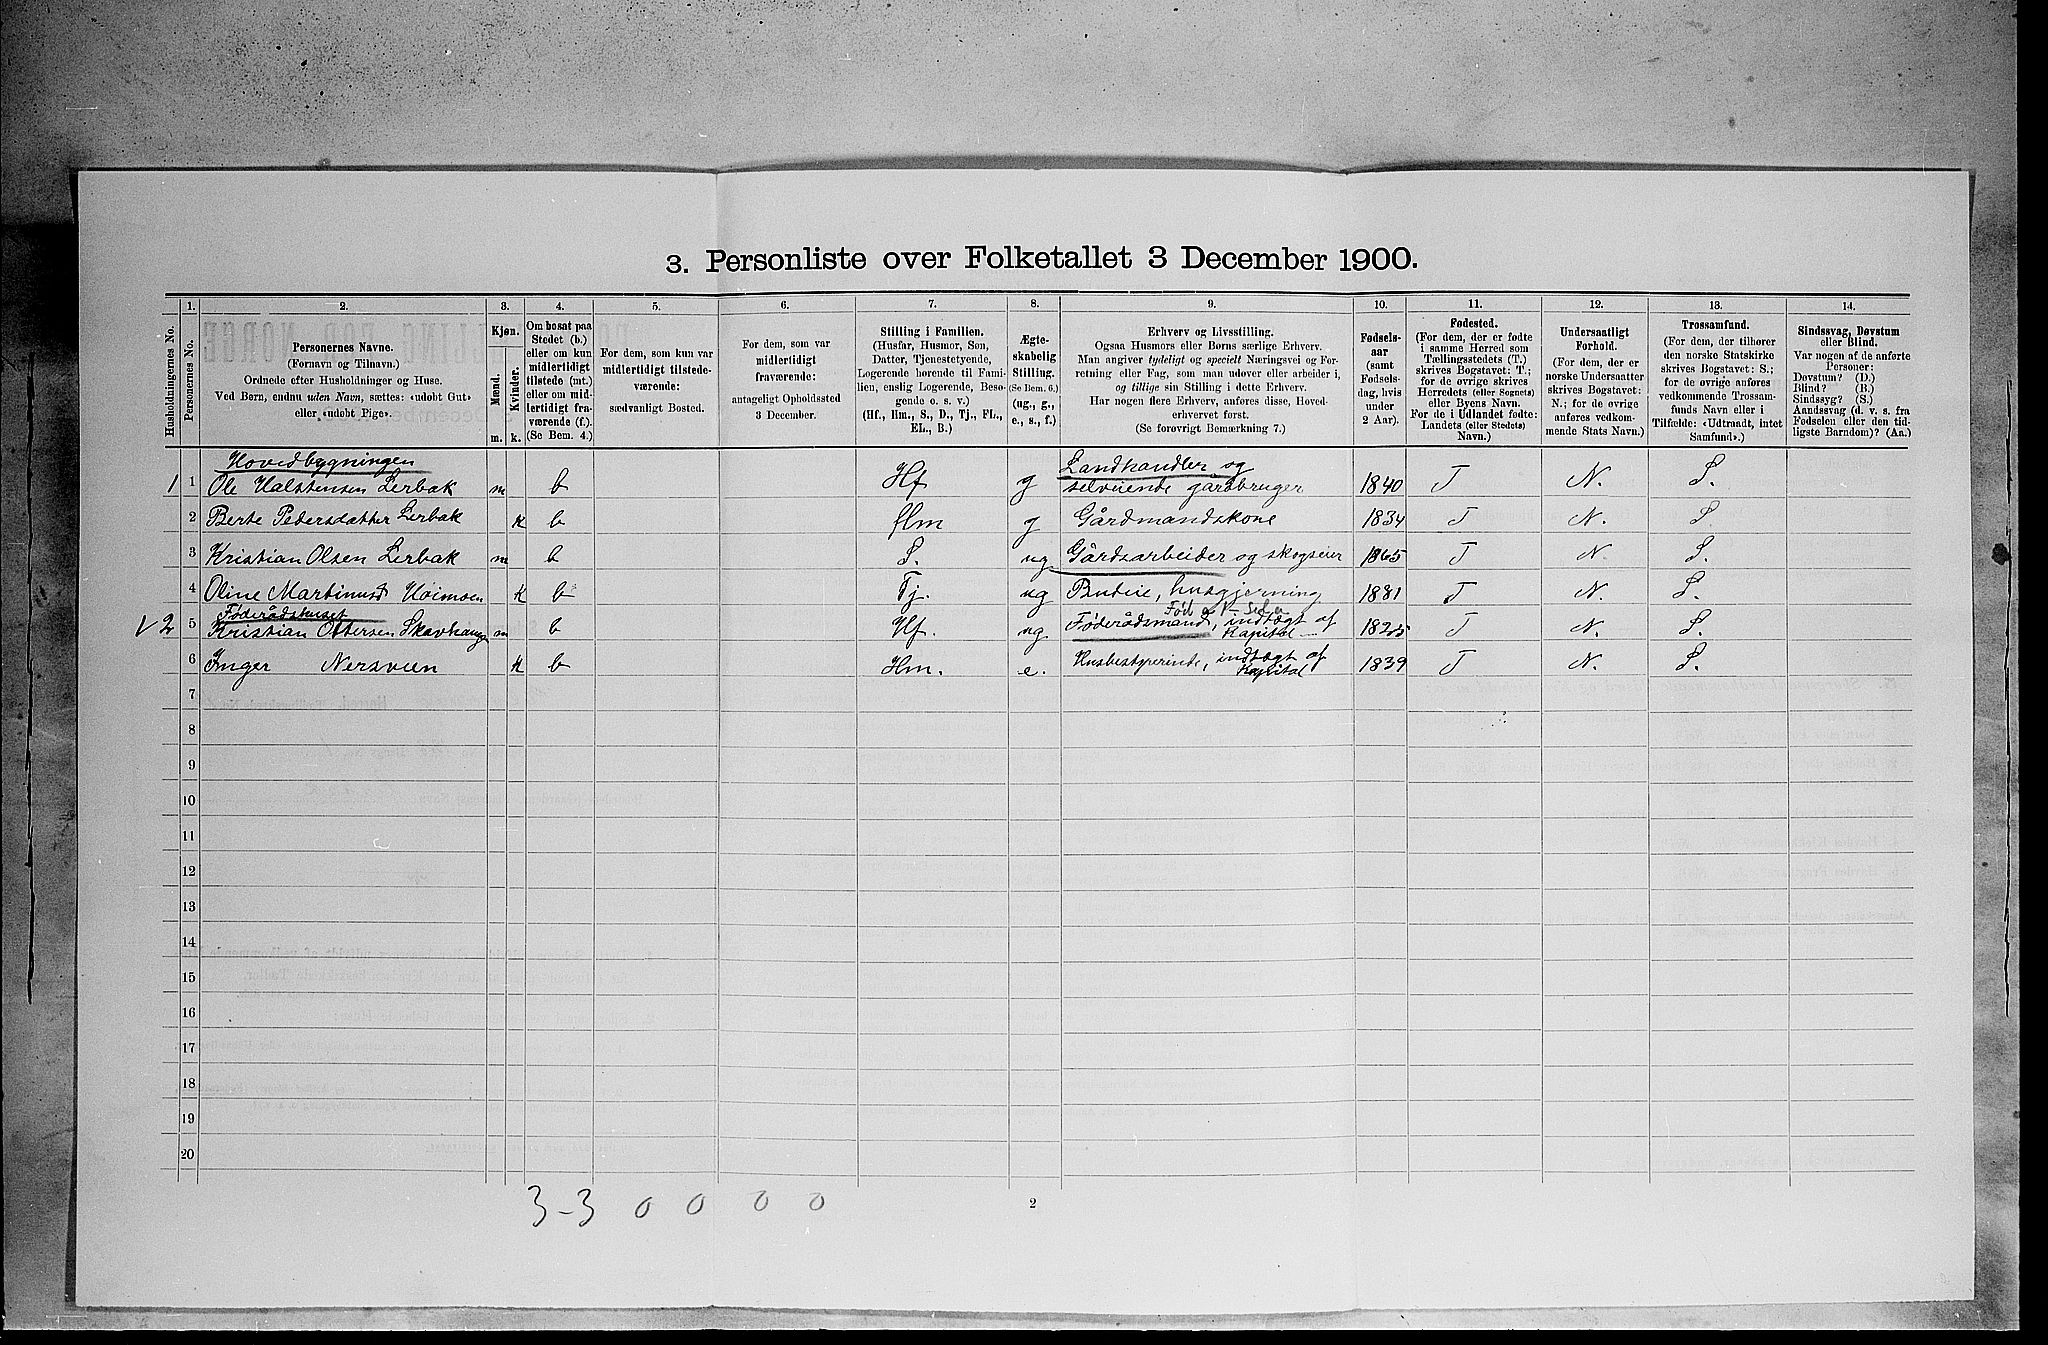 3. Personliste over Folketallet 3 December 1900.
Husholdningernes No.
1.
Personernes No.
2.
Personernes Navne.
(Fornavn og Tilnavn.)
Ordnede efter Husholdninger og Huse.
Ved Børn, endnu uden Navn, sættes: «udobt Gut»
eller «udobt Pige».
3.
Kjøn.
Mænd.
Kvinder.
m.
k.
4.
Om bosat paa
Stedet (b.)
eller om kun
midlertidigt
tilstede (mt.)
eller om mid-
lertidigt fra-
værende (f.).
(Se Bem. 4.)
5.
For dem, som kun var
midlertidigt tilstede-
værende:
sædvanligt Bosted.
6.
For dem, som var
midlertidigt
fraværende:
antageligt Opholdssted
3 December.
7.
Stilling i Familien.
(Husfar, Husmor, Søn,
Datter, Tjenestetyende,
Logerende hørende til Fami-
lien, enslig Logerende, Beso-
gende o. s. v.)
(Hf., Hm., S., D., Tj., FL.,
EL., B.)
8.
Ægte-
skabelig
Stilling.
(Se Bem. 6.)
(ug., g.,
e., s., f.)
9.
Erhverv og Livsstilling.
Ogsaa Husmors eller Børns særlige Erhverv.
Man angiver tydeligt og specielt Næringsvei og For-
retning eller Fag, som man udøver eller arbeider i,
og tillige sin Stilling i dette Erhverv.
Har nogen flere Erhverv, anføres disse, Hoved-
erhvervet først.
(Se forøvrigt Bemærkning 7.)
10.
Fødsels-
aar
(samt
Fødsels-
dag, hvis
under
2 Aar).
11.
Fødested.
(For dem, der er fødte
i samme Herred som
Tællingsstedets (T.)
skrives Bogstavet: T.;
for de øvrige skrives
Herredets (eller Sognets)
eller Byens Navn.
For de i Udlandet fødte:
Landets (eller Stedets)
Navn.)
12.
Undersaatligt
Forhold.
(For dem, der er
norske Undersaatter
skrives Bogstavet:
N.; for de øvrige
anføres vedkom-
mende Stats Navn.)
13.
Trossamfund.
(For dem, der tilhører
den norske Statskirke
skrives Bogstavet: S.;
for de øvrige anføres
vedkommende Trossam-
funds Navn eller i
Tilfælde: «Udtraadt, intet
Samfund».)
14.
Sindssvag, Døvstum
eller Blind.
Var nogen af de anførte
Personer:
Døvstum? (D.)
Blind? (B.)
Sindssyg? (S.)
Aandssvag (d. v. s. fra
Fødselen eller den tid-
ligste Barndom)? (Aa.)
Hovedbygningen
1 1 Ole Halstensen Lerbak m b Hf g Landhandler og selveiende gårdbruger 1840 T N. S.
2 Berte Pedersdatter Lerbak k b Hm g Gårdmandskone 1834 T N. S.
3 Kristian Olsen Lerbak m b S. ug Gårdsarbeider og skogseier 1865 T N S.
4 Oline Martinusd Hoimoen k b Tj. ug Budeie, husgjerning 1881 T N. S.
Føderådshuset
2 5 Kristian Ottersen Skavhaug m b Hf. ug Føderådsmand, indtægt af Kapital 1825 T N. S.
6 Inger Nersveen k b Hm. e. Husbestyrerinde, indtægt af Kapital 1839 T N. S.
7
8
9
10
11
12
13
14
15
16
17
18
19
20
3-3 0 0 0 0
2